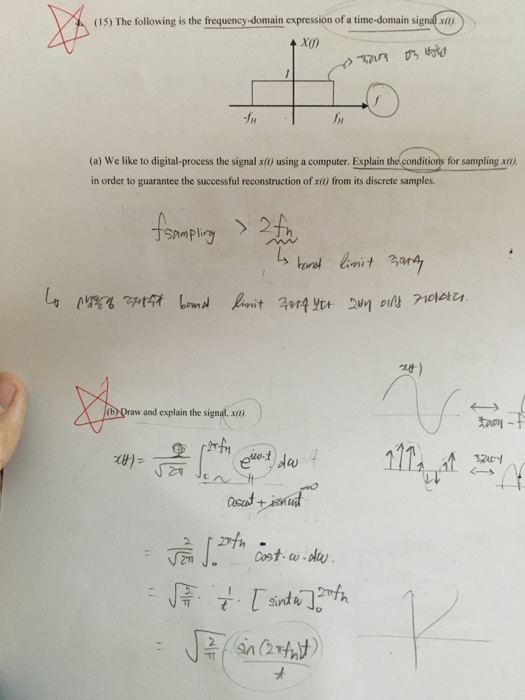 (15) The following is the frequency-domain expression of a time-domain signal x(t).
X(f)
1
f
-f_H
f_H
(a) We like to digital-process the signal x(t) using a computer. Explain the conditions for sampling x(t),
in order to guarantee the successful reconstruction of x(t) from its discrete samples.
f sampling > 2fh
↳ band limit 주파수
↳ 샘플링 주파수가 band limit 주파수 보다 2배 이상 커야한다.
x(t)
(b) Draw and explain the signal, x(t).
x(t) = 2/√2π ∫ 2πfh e^iωt dω
cosωt + isinωt → 0
= 2/√2π ∫₀^2πfh cost·ω·dω.
= √(2/π) · 1/t · [sintω]₀^2πfh
= √(2/π) sin(2πfh t)/t